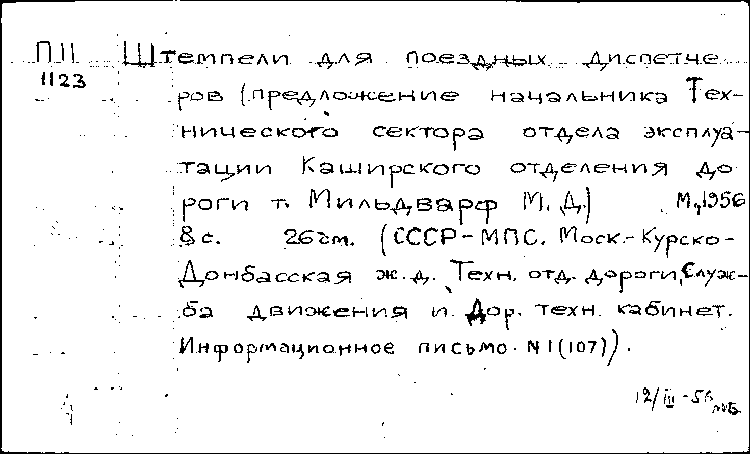 П II Штемпели для поездных диспетче
1123
ров (предложение начальника Тех-
нического сектора отдела эксплуа-
тации Каширского отделения до
роги т. Мильдварф М. Д.) М., 1956
8 с. 26 см. (СССР-МПС. Моск.-Курско-
Донбасская ж.д. Техн. отд. дороги, Служ-
ба движения и Дор. техн. кабинет.
Информационное письмо. N 1 (107)).
12/III-56